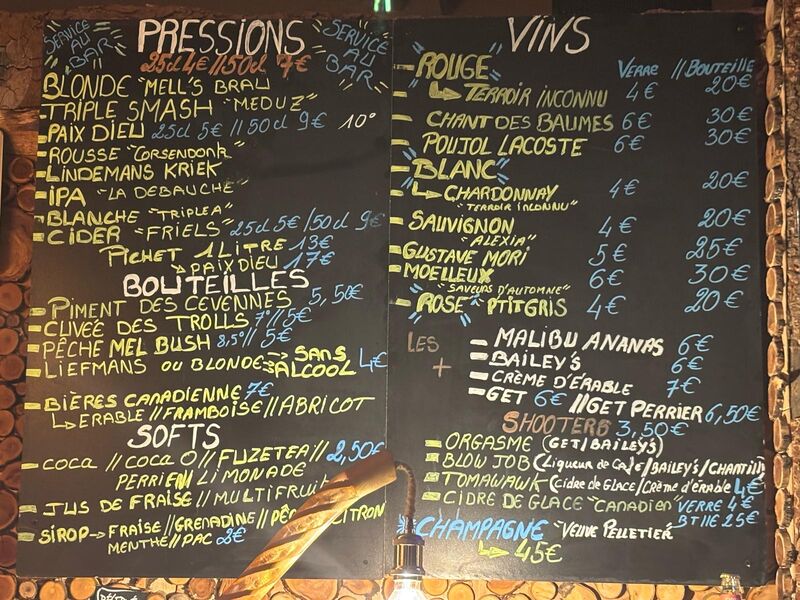 SERVICE AU BAR
PRESSIONS
SERVICE AU BAR
25cl 4€ // 50cl 7€
BLONDE "MELL'S BRAU
TRIPLE SMASH "MEDUZ"
PAIX DIEU 25cl 5€ // 50cl 9€ 10°
ROUSSE "CORSENDONK
LINDEMANS KRIEK
IPA "LA DEBAUCHE"
BLANCHE "TRIPLEA"
CIDER "FRIELS" 25cl 5€ / 50cl 9€
PICHET 1 LITRE 13€
PAIX DIEU 17€
BOUTEILLES
PIMENT DES CEVENNES 5,50€
CUVÉE DES TROLLS 7° // 5€
PÊCHE MEL BUSH 8,5° // 5€
LIEFMANS OU BLONDE SANS ALCOOL 4€
BIÈRES CANADIENNE 7€
ERABLE // FRAMBOISE // ABRICOT
SOFTS
COCA // COCA O // FUZETEA // 2,50€
PERRIER / LIMONADE
JUS DE FRAISE / MULTIFRUIT
SIROP FRAISE // GRENADINE // CITRON
MENTHE // PAC 2€
VINS
VERRE // BOUTEILLE
ROUGE
TERROIR INCONNU 4€ 20€
CHANT DES BAUMES 6€ 30€
POUJOL LACOSTE 6€ 30€
BLANC
CHARDONNAY 4€ 20€
"TERROIR INCONNU"
SAUVIGNON 4€ 20€
"ALEXIA"
GUSTAVE MORI 5€ 25€
MOELLEUX 6€ 30€
"SAVEURS D'AUTOMNE"
ROSE "PTIT GRIS 4€ 20€
LES +
MALIBU ANANAS 6€
BAILEY'S 6€
CRÈME D'ÉRABLE 7€
GET 6€ // GET PERRIER 6,50€
SHOOTERS 3,50€
ORGASME (GET/BAILEY'S)
BLOW JOB (Liqueur de CAFÉ/BAILEY'S/CHANTILLY
TOMAWAWK (Cidre de GLACE/CRÈME D'ÉRABLE 4€
CIDRE DE GLACE "CANADIEN" VERRE 4€
BTIIE 25€
CHAMPAGNE "VEUVE PELLETIER"
45€